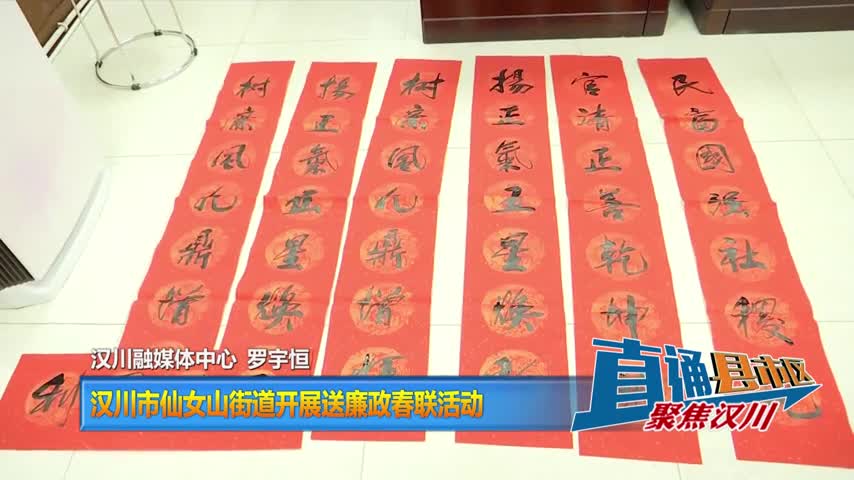 民富國强社稷
官清正善乾坤
揚正氣五星焕
樹廉風九鼎增
揚正氣五星焕
樹廉風九鼎增
汉川融媒体中心 罗宇恒
汉川市仙女山街道开展送廉政春联活动
直通县市区
聚焦汉川